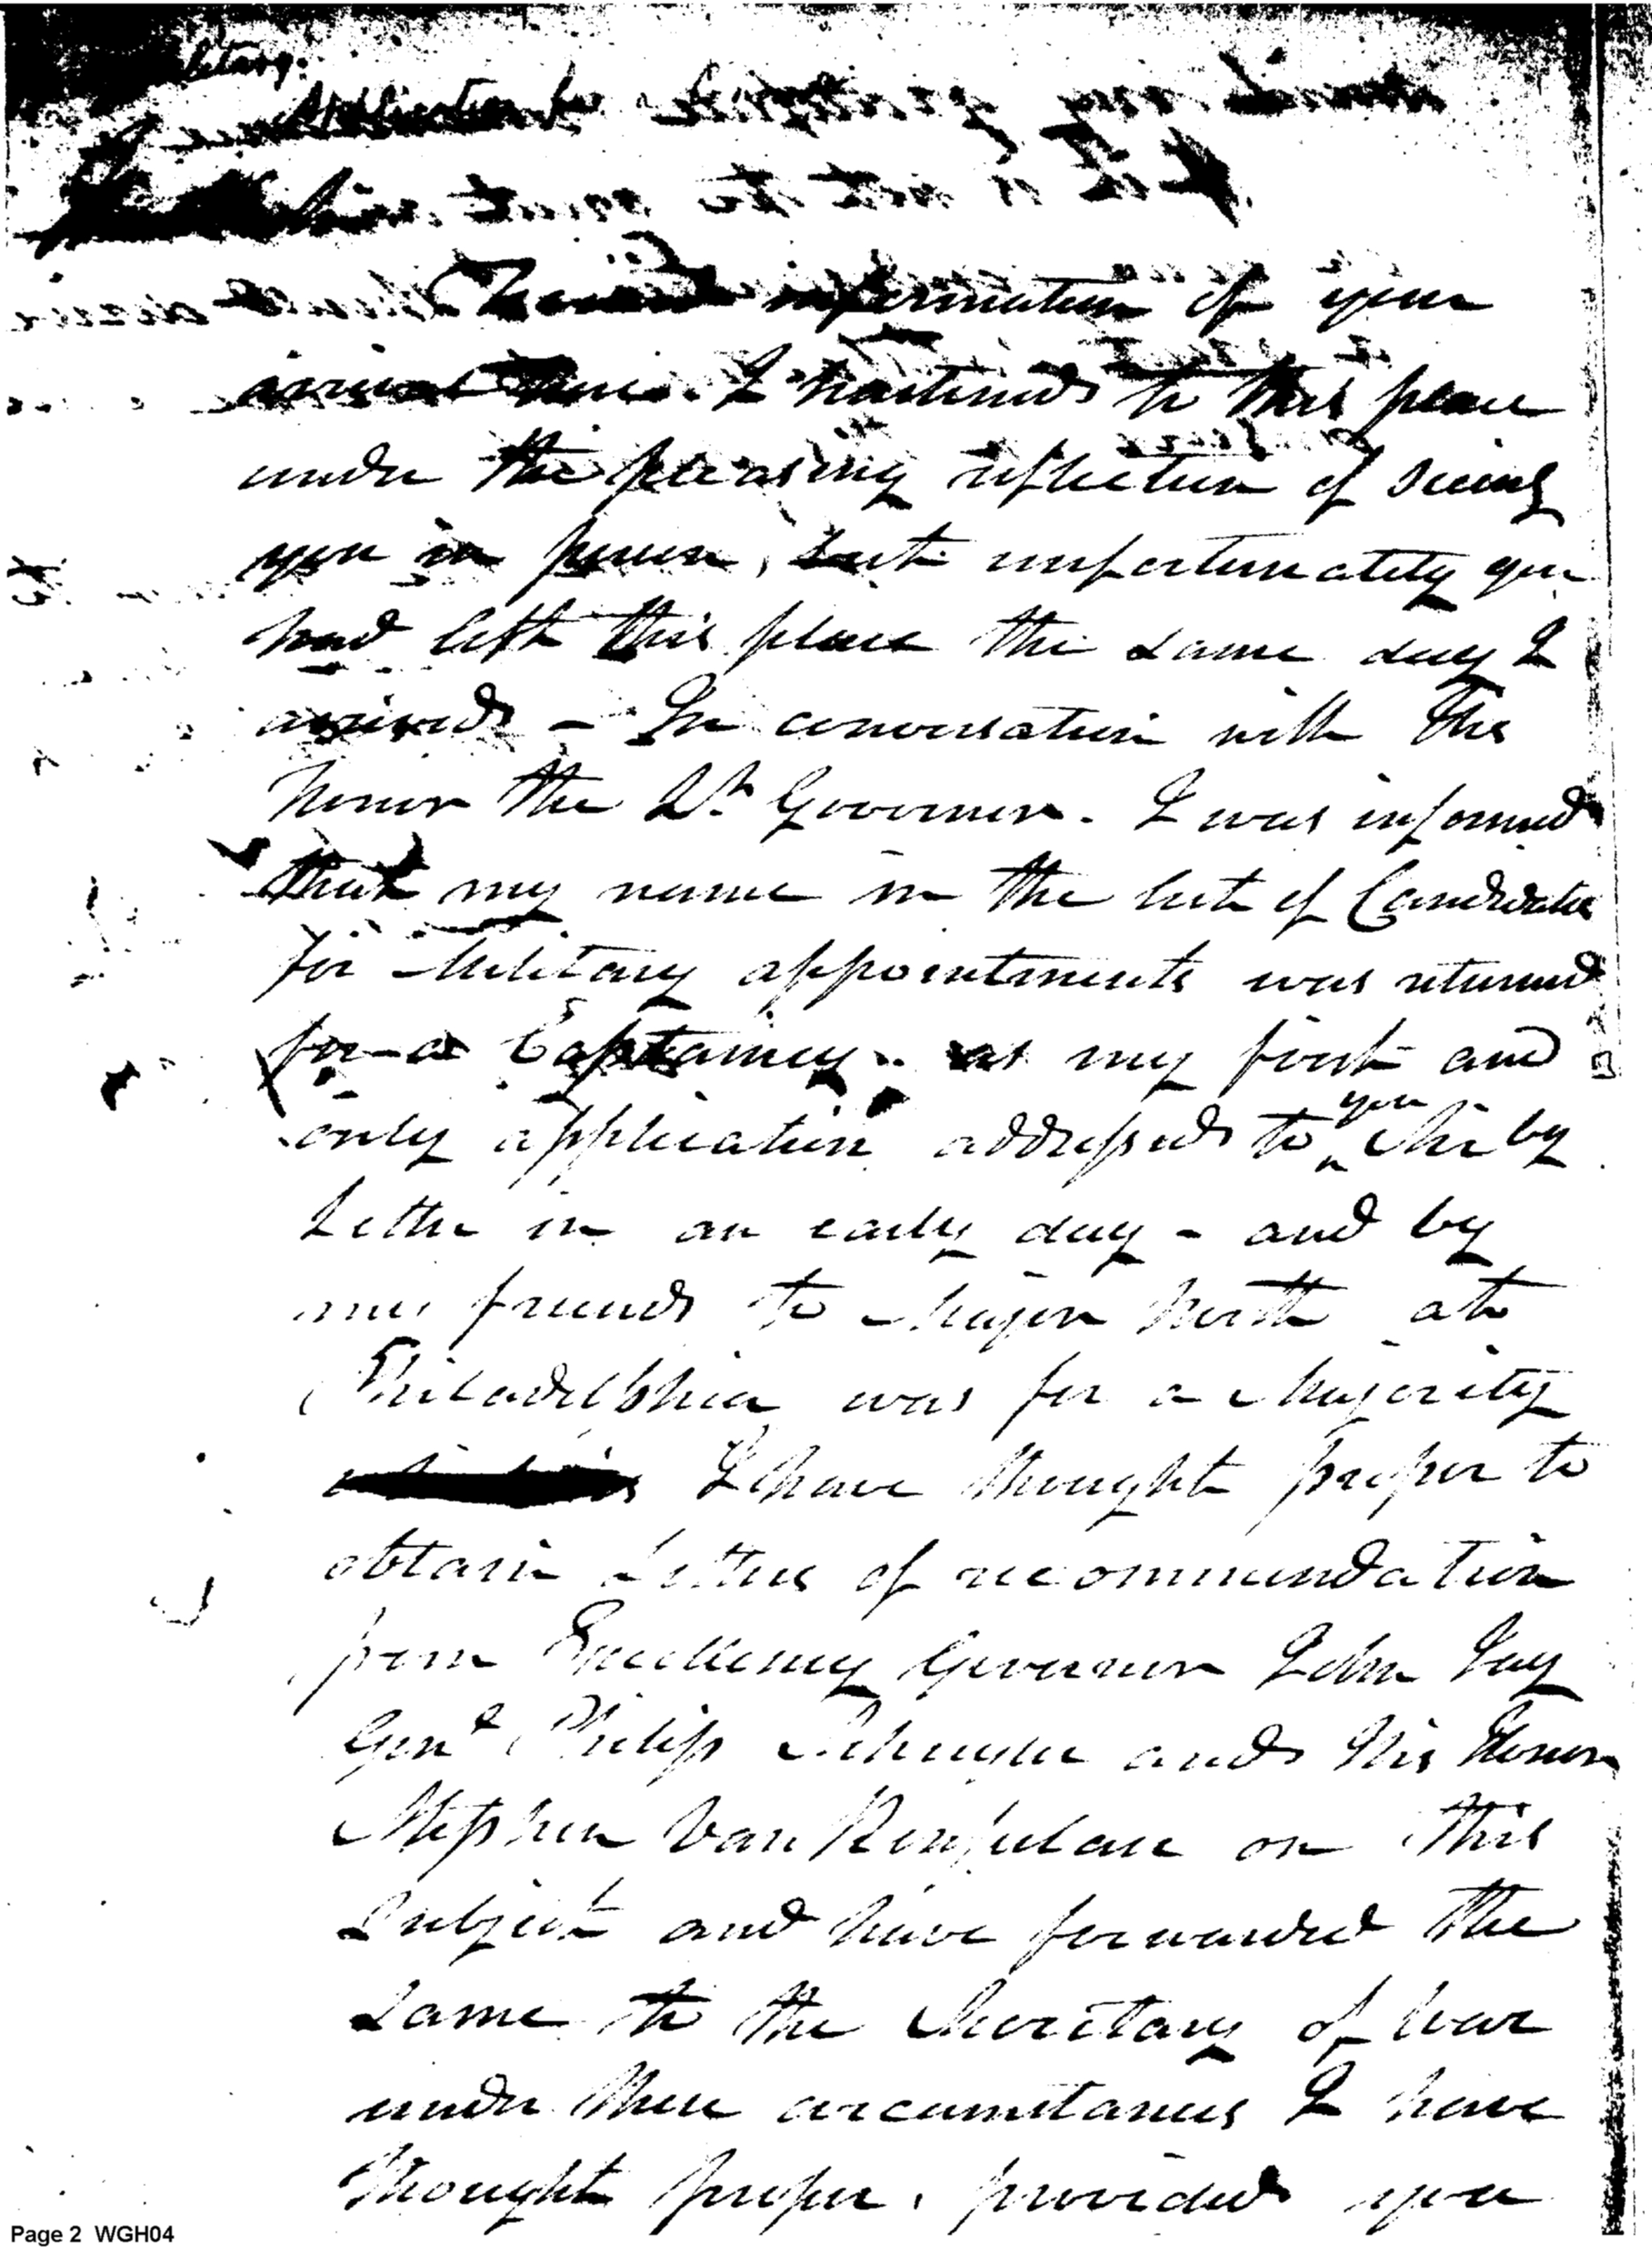 information of your
arrival here. I hastened to this place
under the pleasing reflection of seeing
you in person, but unfortunately you
had left this place the same day I
arrived – In conversation with His
honor the Lt. Governor. I was informed
that my name in the list of Candidates
for Military appointments was returned
for a Captaincy. as my first and
only application addressed to you Sir by
Letter in an early day - and by
my friends to Major North at
Philadelphia was for a Majority
I have thought proper to
obtain Letters of recommendation
from Excellency Governor John Jay
Genl Philip Schuyler and His Honor
Stephen Van Renselaer on this
Subject and have forwarded the
Same to the Secretary of War
under these circumstances I have
thought proper, provided you
Page 2 WGH04